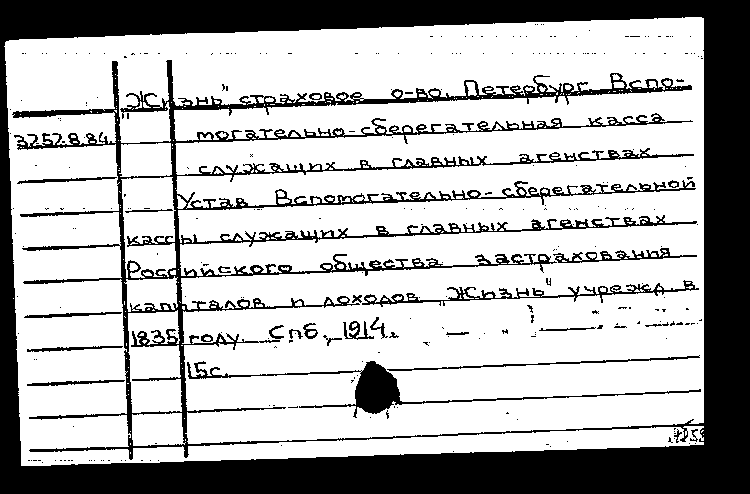 „Жизнь", страховое о-во. Петербург. Вспо-
3257.8.84. могательно-сберегательная касса
служащих в главных агенствах.
Устав Вспомогательно-сберегательной
кассы служащих в главных агенствах
Российского общества застрахования
капиталов и доходов „Жизнь" учрежд. в
1835 году. Спб., 1914.
15с.